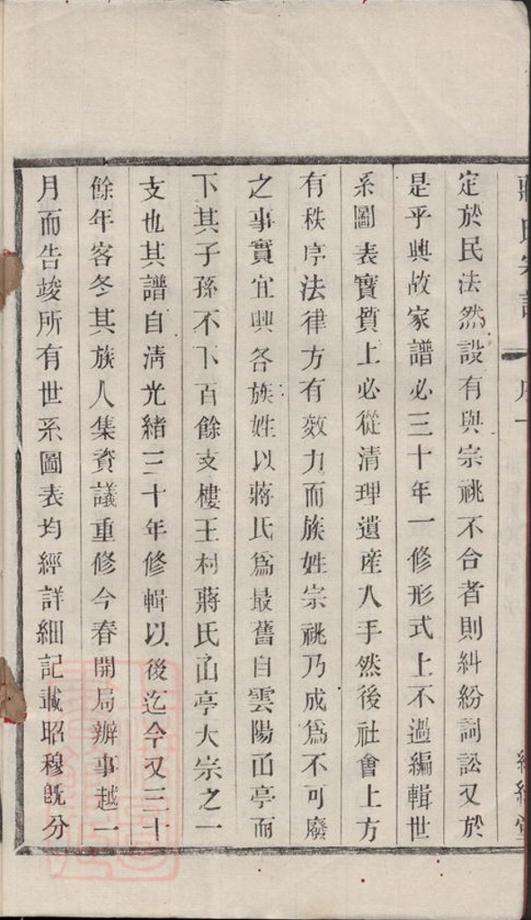 定於民法然設有與宗祧不合者則糾紛詞訟又於
是乎興故家譜必三十年一修形式上不過編輯世
系圖表實質上必從清理遺産入手然後社會上方
有秩序法律方有效力而族姓宗祧乃成爲不可廢
之事實宜興各族姓以蔣氏爲最舊自雲陽凾亭而
下其子孫不下百餘支樓王村蔣氏凾亭大宗之一
支也其譜自淸光緒三十年修輯以後迄今又三十
餘年客冬其族人集資議重修今春開局辦事越一
月而告竣所有世系圖表均經詳細記載昭穆旣分